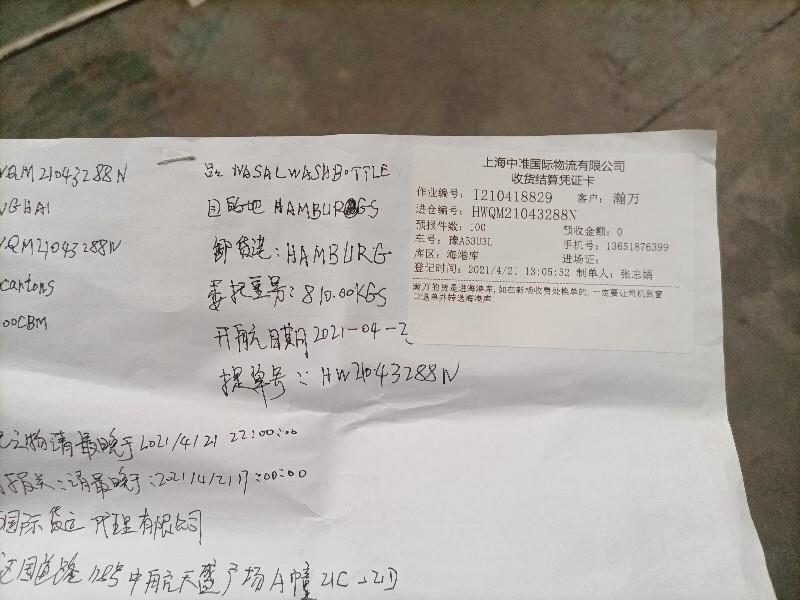 QM21043288N
品名 NASALWASHBOTTLE
目的地 HAMBURGS
QM21043288N
卸货港:HAMBURG
cartons
委托重号:810.00KGS
00CBM
开航日期 2021-04-2
提单号:HW21043288N
上海中准国际物流有限公司
收货结算凭证卡
作业编号: I210418829 客户: 瀚万
进仓编号: HWQM21043288N
预报件数: 100 预收金额: 0
车号: 豫A53U3L 手机号: 13651876399
库区: 海港库 进场证:
登记时间: 2021/4/21 13:05:52 制单人: 张志娟
瀚万的货是进海港库, 如在新场收费处换单的, 一定要让司机到窗
口退单并转送海港库!
物请最晚于2021/4/21 22:00:00
报关:请最晚于:2021/4/21 17:00:00
国际货运代理有限公司
国道路 128号中航天盛广场A幢21C-21D